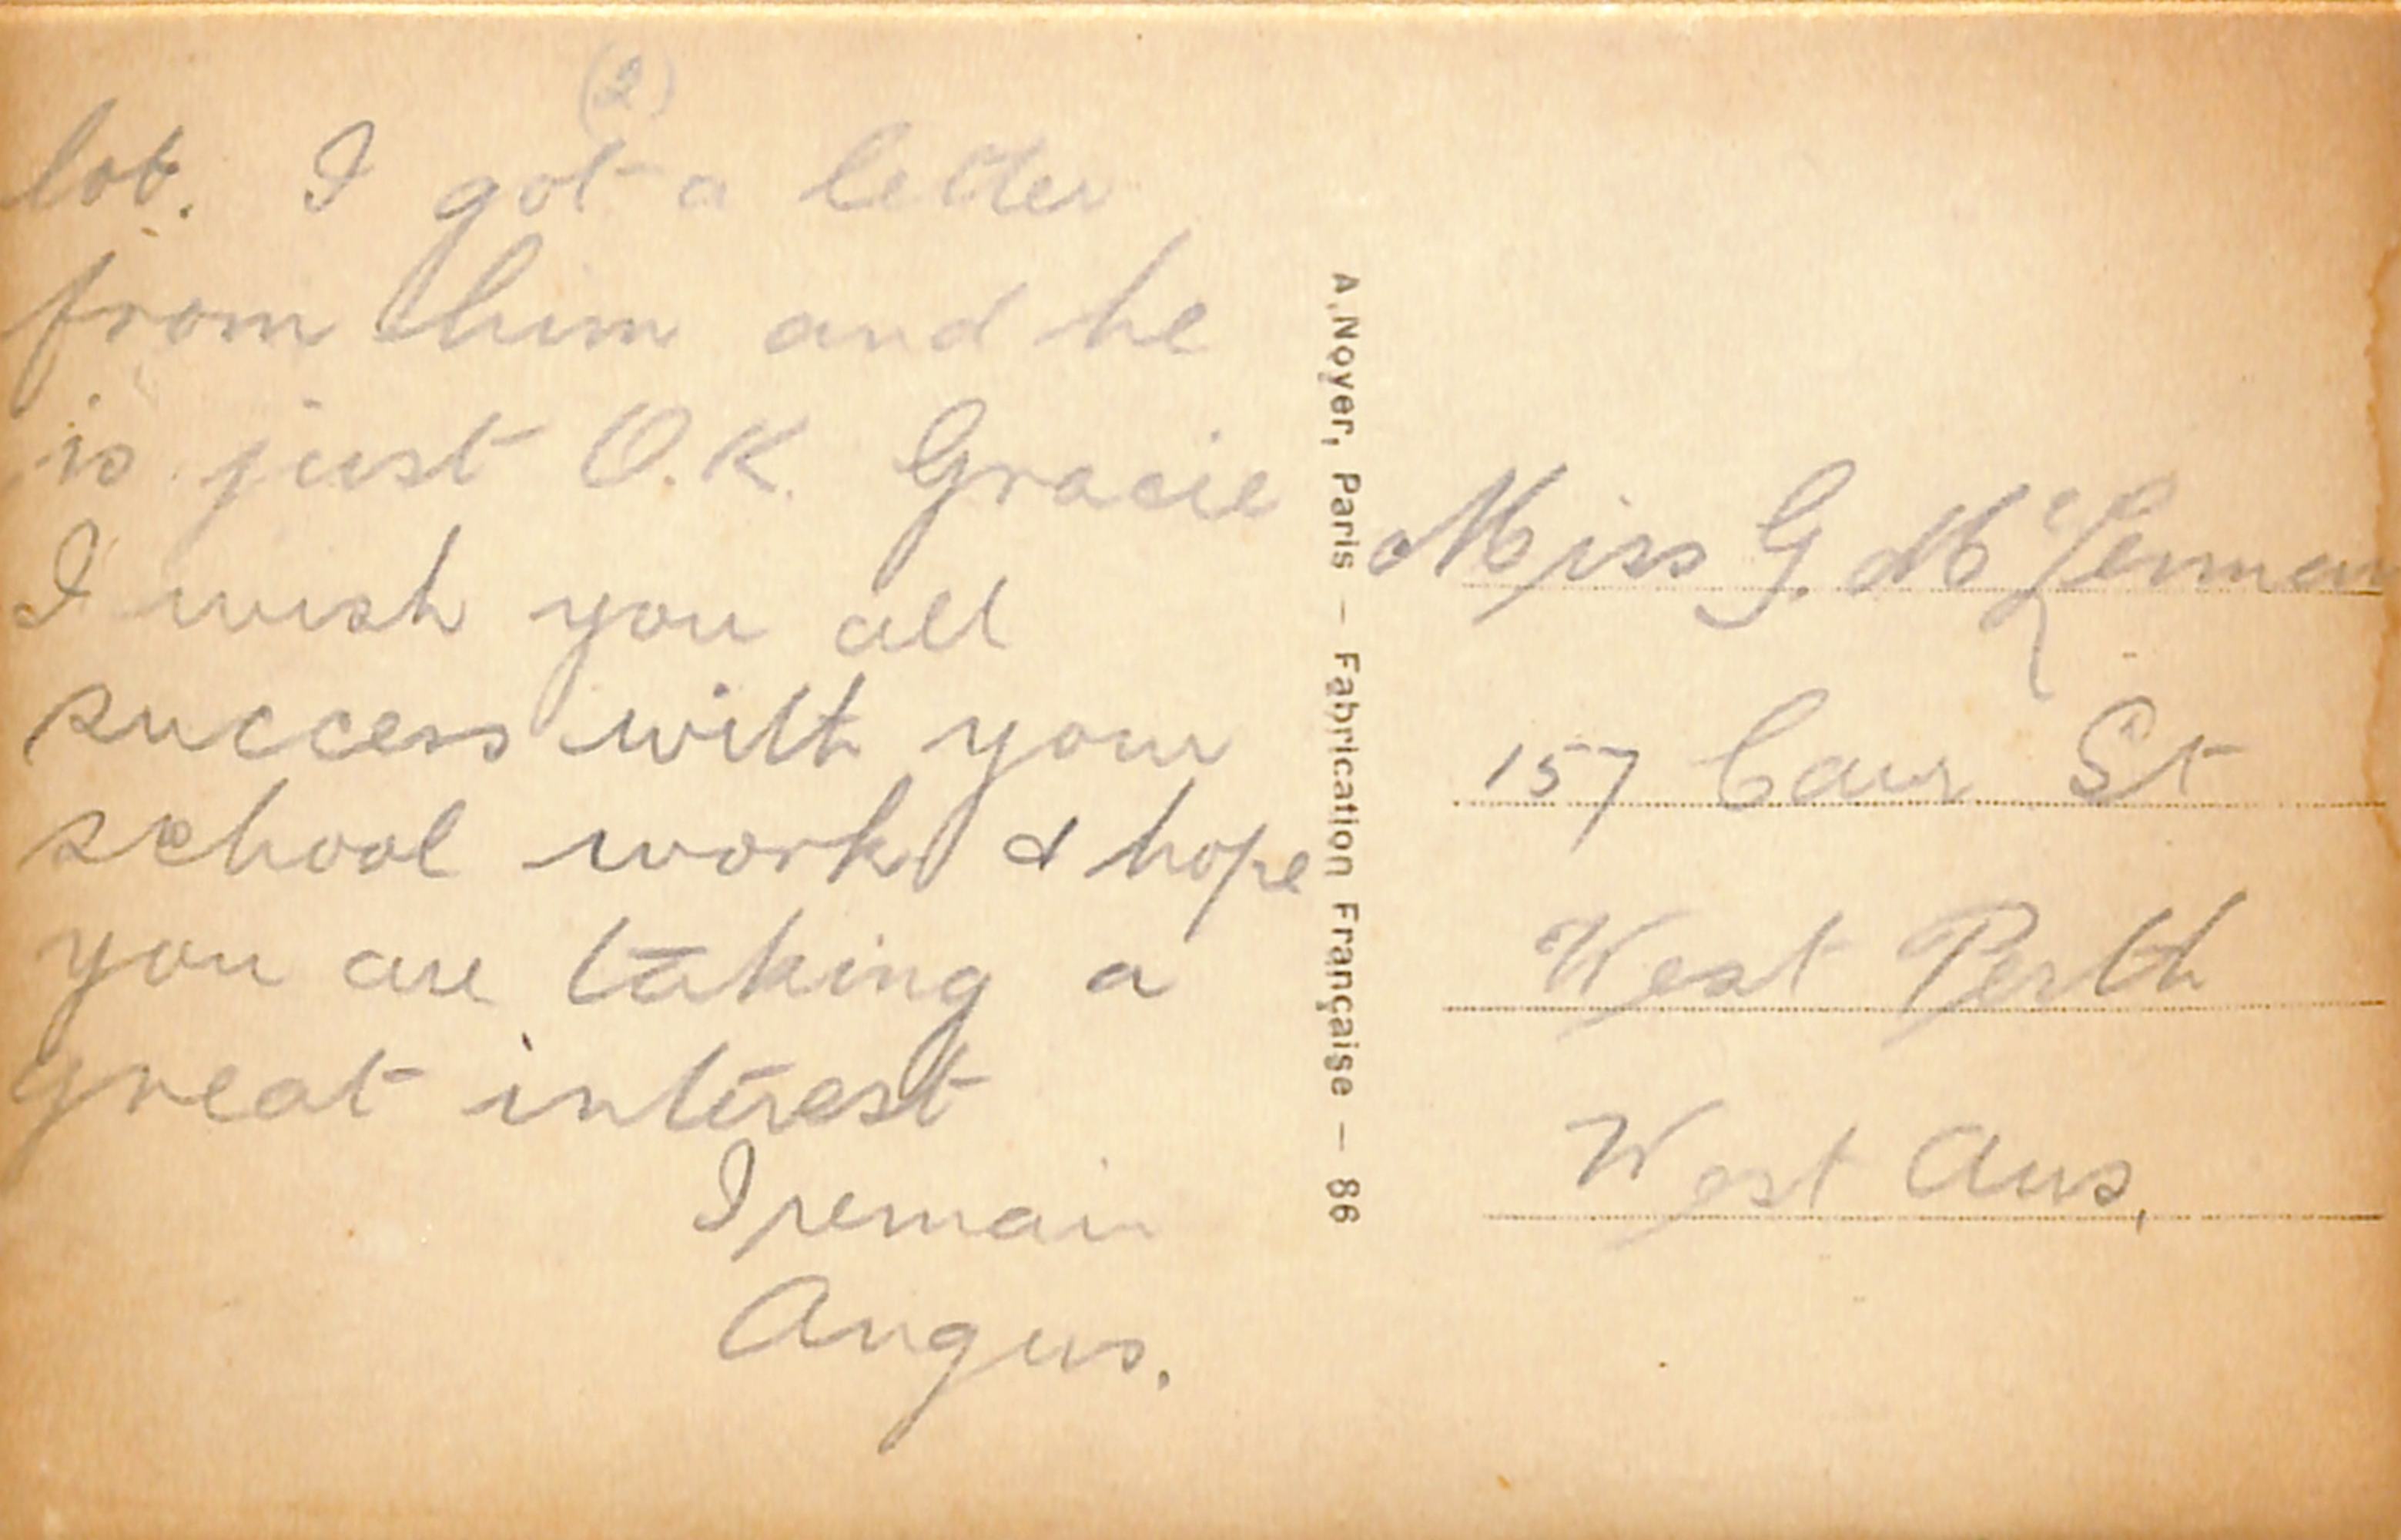 (2)
lot. I got a letter
from him and he
is just O.K. Gracie
I wish you all
success with your
school work & hope
you are taking a
great interest
I remain
Angus.
A. Noyer, Paris — Fabrication Française — 86
Miss G. McLennan
157 Carr St
West Perth
West Aus.